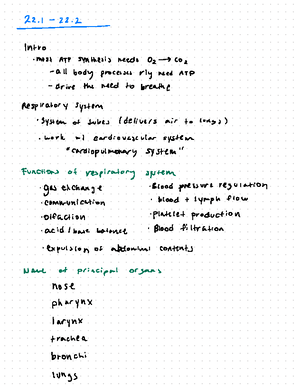 22.1 - 22.2
Intro
· most ATP synthesis needs O₂ → CO₂
- all body processes rly need ATP
- drive the need to breathe
Respiratory System
· System of tubes (delivers air to lungs)
· work w/ cardiovascular system
"cardiopulmonary system"
Functions of respiratory system
· gas exchange
· communication
· olfaction
· acid/base balance
· expulsion of abdominal contents
· Blood pressure regulation
· blood + lymph flow
· platelet production
· Blood filtration
Name of principal organs
nose
pharynx
larynx
trachea
bronchi
lungs